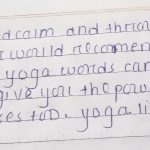 d calm and thrice
I would recommen
yoga words can
give you the pow
ses too. yoga li